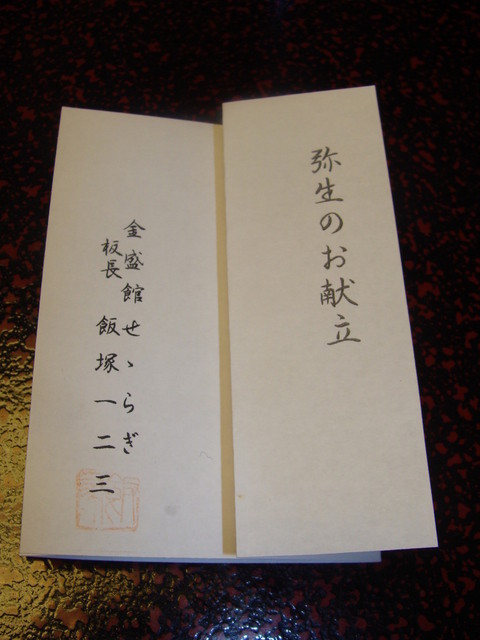 弥生のお献立
金盛館せゝらぎ
板長 飯塚一二三